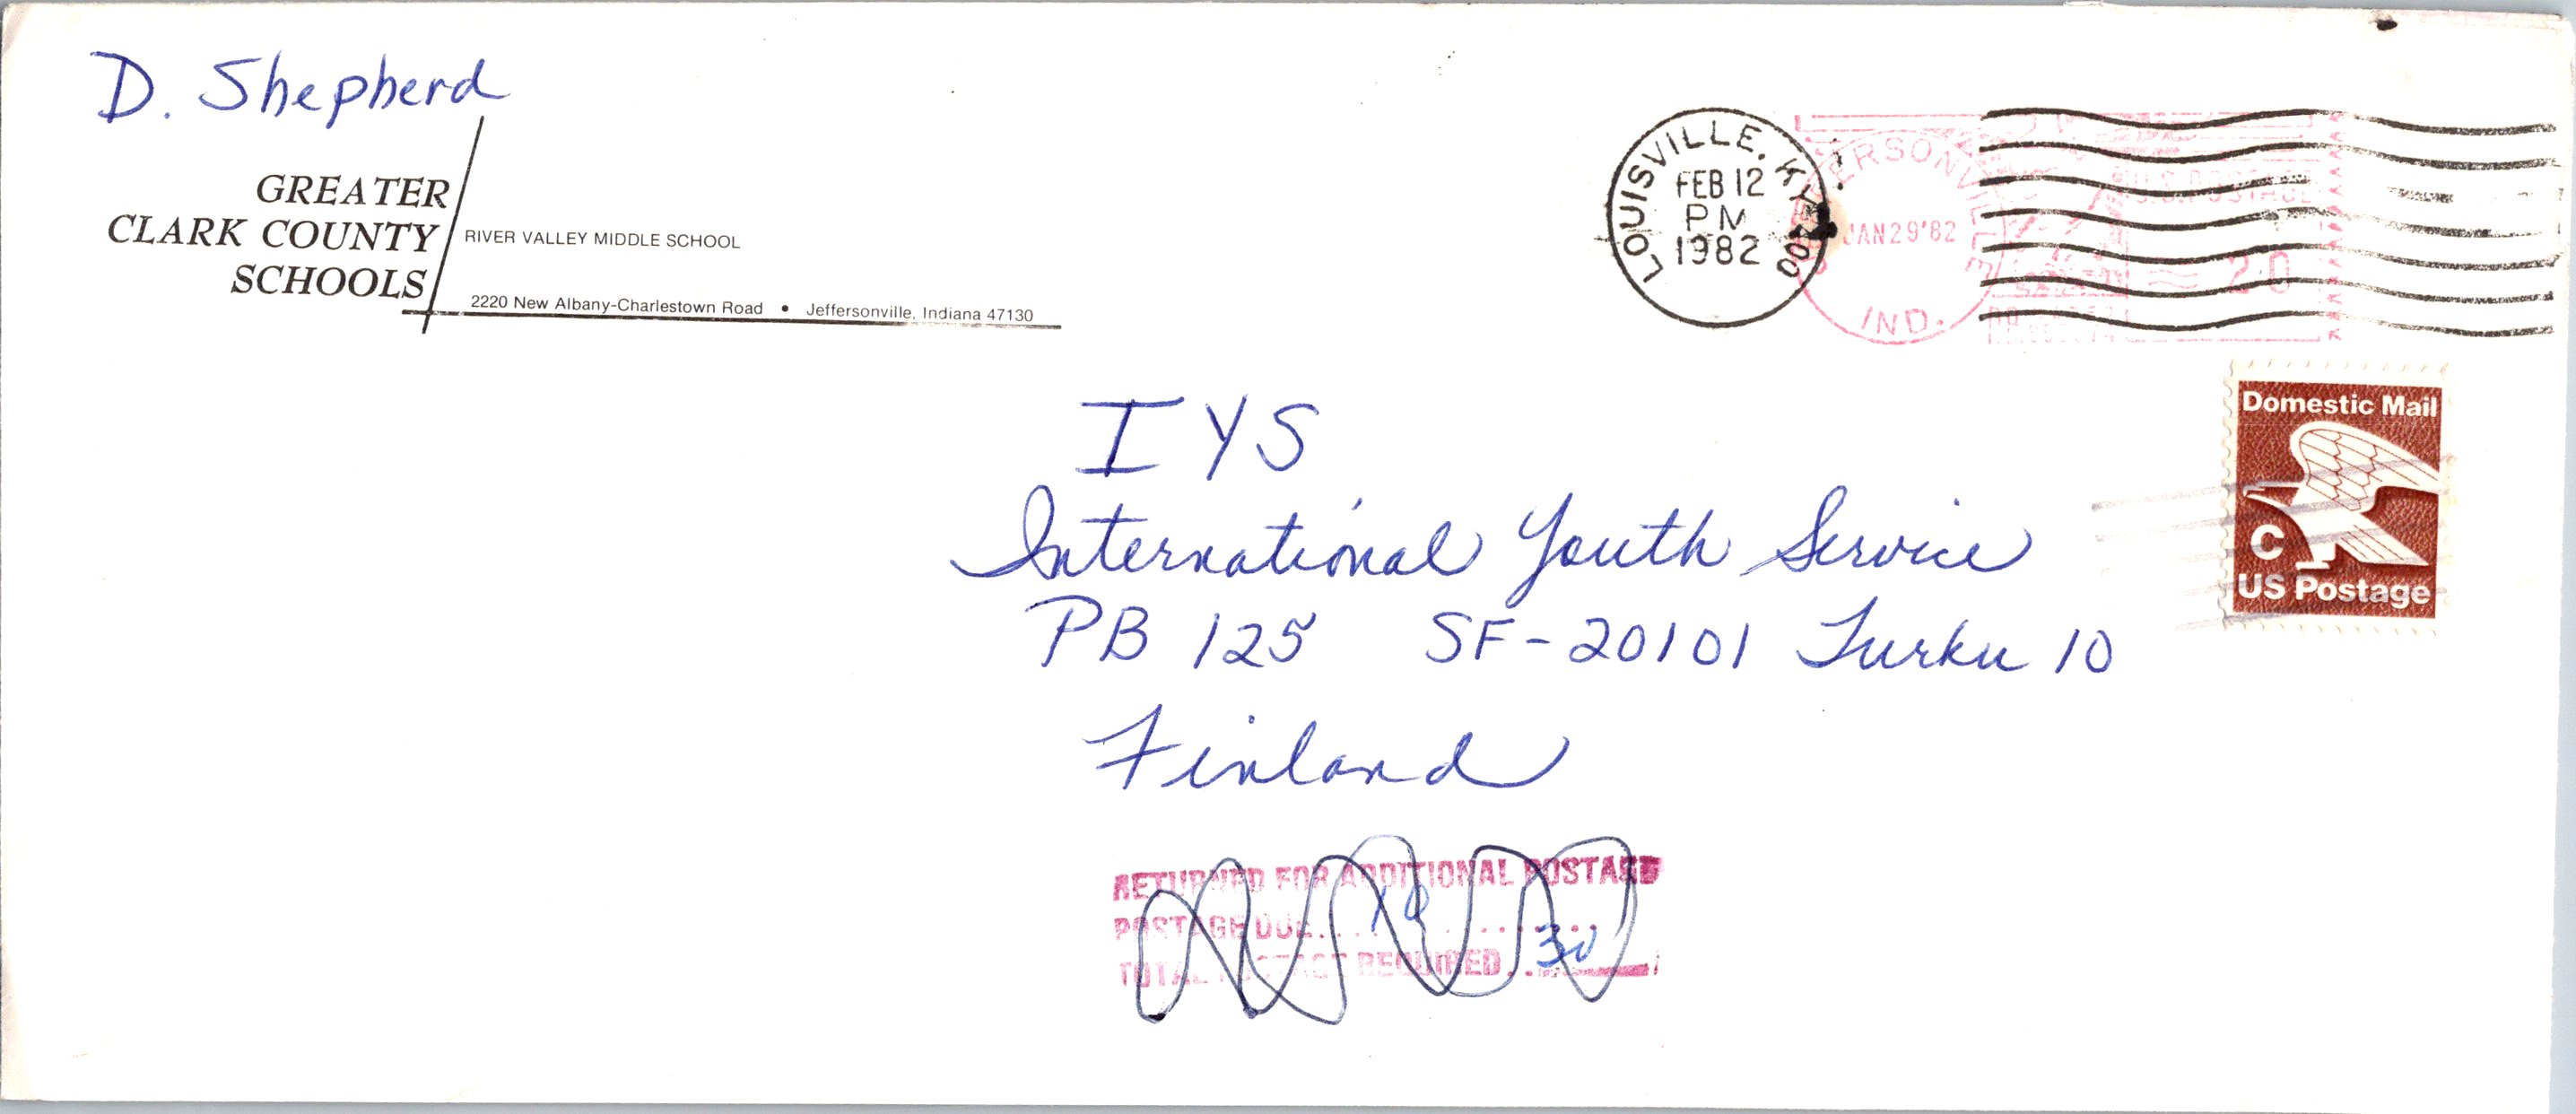 D. Shepherd
GREATER
CLARK COUNTY
SCHOOLS
RIVER VALLEY MIDDLE SCHOOL
2220 New Albany-Charlestown Road • Jeffersonville, Indiana 47130
LOUISVILLE, KY 400
FEB 12
PM
1982
JEFFERSONVILLE
JAN 29 '82
IND.
U.S. POSTAGE
≈ 20
Domestic Mail
C
US Postage
IYS
International Youth Service
PB 125 SF-20101 Turku 10
Finland
RETURNED FOR ADDITIONAL POSTAGE
POSTAGE DUE.... 10 ........
TOTAL POSTAGE REQUIRED.. 30